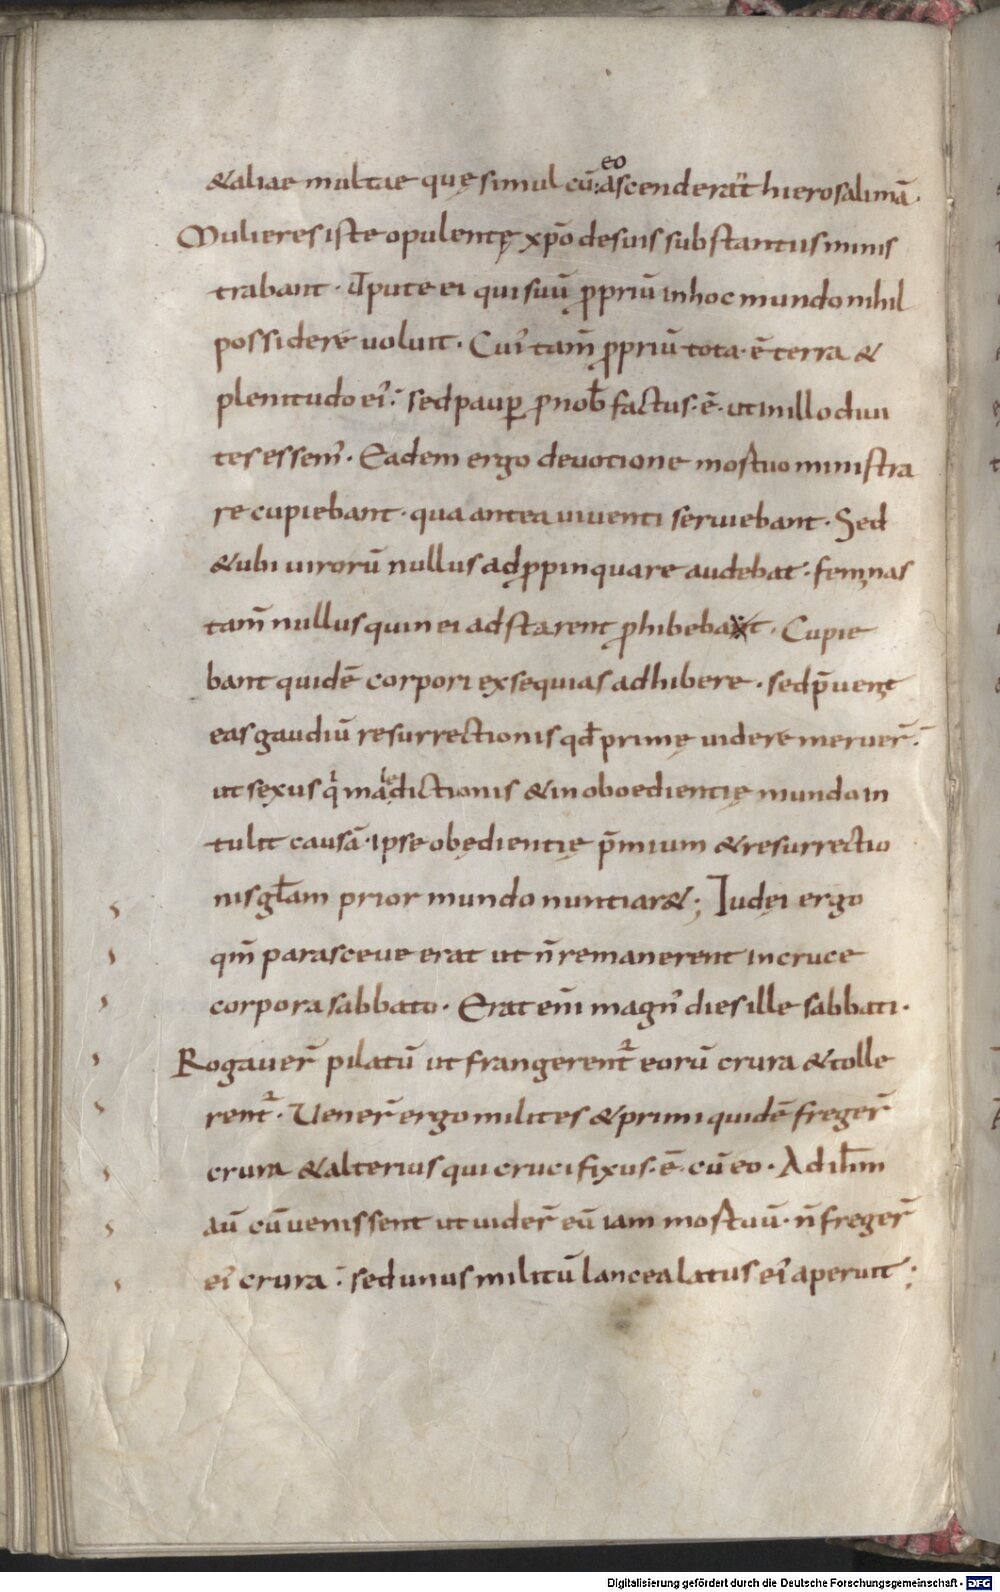 &aliae multae quę simul cū: eo ascenderāt hierosalimā.
Mulieres iste opulentę xp̄o desuis substantiis minis
trabant. Utpute ei qui suū ꝓpriū inhoc mundo nihil
possidere uoluit. Cui᾽ tam̄ ꝓpriū tota ē terra &
plenitudo ei᾽: sed paup̱ ꝓ nob̄ factus ē. ut inillo diui
tes essem᾽. Eadem ergo deuotione mortuo ministra
re cupiebant. qua antea uiuenti seruiebant. Sed
&ubi uirorū nullus adꝓpinquare audebat. feminas
tam̄ nullus quin ei adstarent ꝓhibebat. Cupie
bant quidē corpori exsequias adhibere. sed p̄uenit
eas gaudiū resurrectionis qđ primę uidere meruer̄:
ut sexus q᾽ maledictionis & inoboedientię mundo in
tulit causā. ipse obędientię p̄mium & resurrectio
nis gl̄am prior mundo nuntiar&; Iudęi ergo
qm̄ parasceue erat ut n̄ remanerent in cruce
corpora sabbato. Erat em̄ magn᾽ dies ille sabbati.
Rogauer̄ pilatū ut frangerent᾽ eorū crura & tolle
rent᾽. Uener̄ ergo milites & primi quidē freger̄
crura & alterius qui crucifixus ē cū eo. Ad ih̄m
aū cū uenissent ut uider̄ eū iam mortuū. n̄ freger̄
ei᾽ crura: sed unus militū lancea latus ei᾽ aperuit;
Digitalisierung gefördert durch die Deutsche Forschungsgemeinschaft - DFG